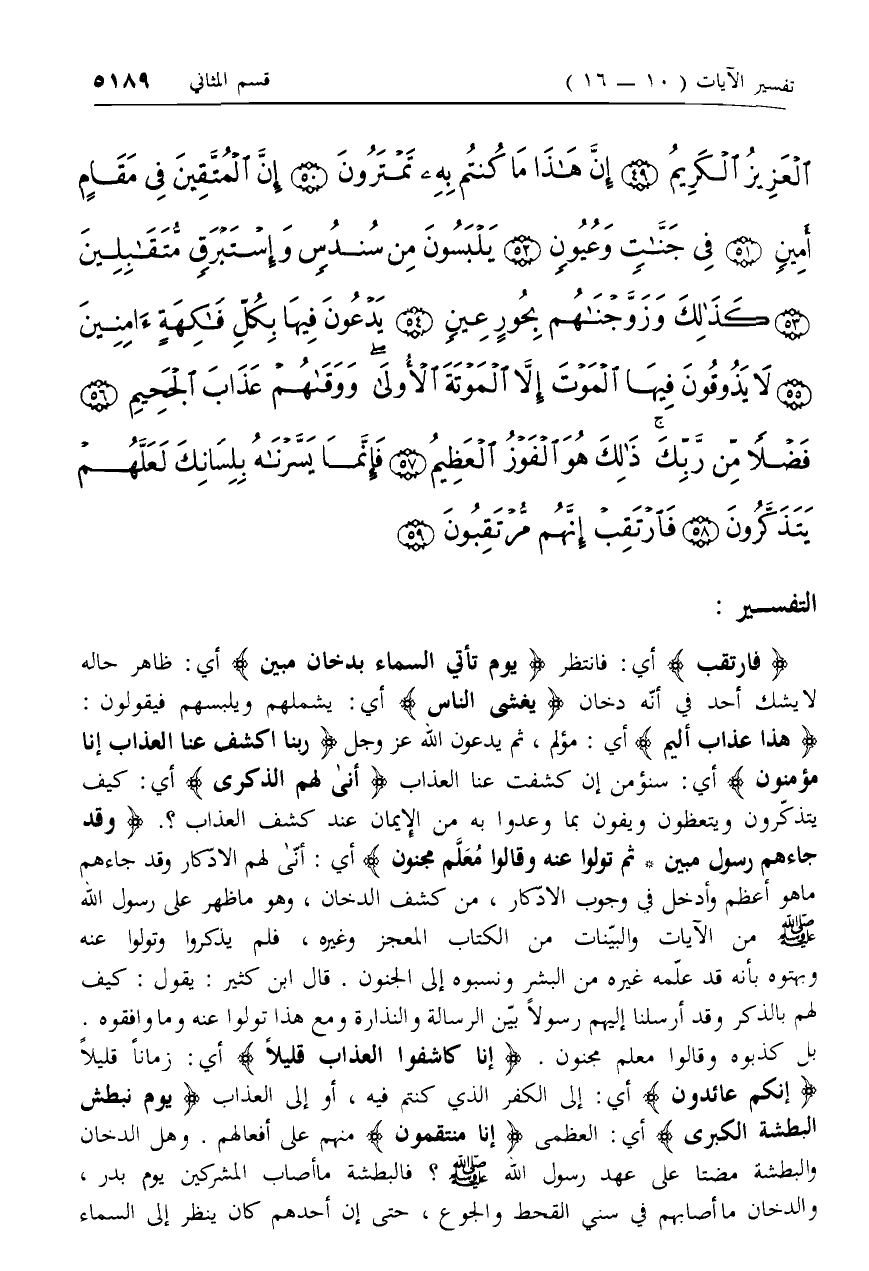 تفسير الآيات ( ١٠ — ١٦ ) قسم المثاني ٥١٨٩
ٱلْعَزِيزُ ٱلْكَرِيمُ ﴿٤٩﴾ إِنَّ هَٰذَا مَا كُنتُم بِهِۦ تَمْتَرُونَ ﴿٥٠﴾ إِنَّ ٱلْمُتَّقِينَ فِى مَقَامٍ
أَمِينٍ ﴿٥١﴾ فِى جَنَّٰتٍ وَعُيُونٍ ﴿٥٢﴾ يَلْبَسُونَ مِن سُندُسٍ وَإِسْتَبْرَقٍ مُّتَقَٰبِلِينَ
﴿٥٣﴾ كَذَٰلِكَ وَزَوَّجْنَٰهُم بِحُورٍ عِينٍ ﴿٥٤﴾ يَدْعُونَ فِيهَا بِكُلِّ فَٰكِهَةٍ ءَامِنِينَ
﴿٥٥﴾ لَا يَذُوقُونَ فِيهَا ٱلْمَوْتَ إِلَّا ٱلْمَوْتَةَ ٱلْأُولَىٰ ۖ وَوَقَىٰهُمْ عَذَابَ ٱلْجَحِيمِ ﴿٥٦﴾
فَضْلًا مِّن رَّبِّكَ ۚ ذَٰلِكَ هُوَ ٱلْفَوْزُ ٱلْعَظِيمُ ﴿٥٧﴾ فَإِنَّمَا يَسَّرْنَٰهُ بِلِسَانِكَ لَعَلَّهُمْ
يَتَذَكَّرُونَ ﴿٥٨﴾ فَٱرْتَقِبْ إِنَّهُم مُّرْتَقِبُونَ ﴿٥٩﴾
التفسير :
﴿ فارتقب ﴾ أي : فانتظر ﴿ يوم تأتي السماء بدخان مبين ﴾ أي : ظاهر حاله
لا يشك أحد في أنّه دخان ﴿ يغشى الناس ﴾ أي : يشملهم ويلبسهم فيقولون :
﴿ هذا عذاب أليم ﴾ أي : مؤلم ، ثم يدعون الله عز وجل ﴿ ربنا اكشف عنا العذاب إنا
مؤمنون ﴾ أي : سنؤمن إن كشفت عنا العذاب ﴿ أنىٰ لهم الذكرى ﴾ أي : كيف
يتذكّرون ويتعظون ويفون بما وعدوا به من الإيمان عند كشف العذاب ؟. ﴿ وقد
جاءهم رسول مبين * ثم تولوا عنه وقالوا مُعَلَّم مجنون ﴾ أي : أنّىٰ لهم الادكار وقد جاءهم
ماهو أعظم وأدخل في وجوب الادّكار ، من كشف الدخان ، وهو ماظهر على رسول الله
ﷺ من الآيات والبيّنات من الكتاب المعجز وغيره ، فلم يذكروا وتولوا عنه
وبهتوه بأنه قد علّمه غيره من البشر ونسبوه إلى الجنون . قال ابن كثير : يقول : كيف
لهم بالذكر وقد أرسلنا إليهم رسولاً بيّن الرسالة والنذارة ومع هذا تولوا عنه وما وافقوه .
بل كذبوه وقالوا معلم مجنون . ﴿ إنا كاشفوا العذاب قليلاً ﴾ أي : زماناً قليلاً
﴿ إنكم عائدون ﴾ أي : إلى الكفر الذي كنتم فيه ، أو إلى العذاب ﴿ يوم نبطش
البطشة الكبرى ﴾ أي : العظمى ﴿ إنا منتقمون ﴾ منهم على أفعالهم . وهل الدخان
والبطشة مضتا على عهد رسول الله ﷺ ؟ فالبطشة ماأصاب المشركين يوم بدر ،
والدخان ماأصابهم في سني القحط والجوع ، حتى إن أحدهم كان ينظر إلى السماء